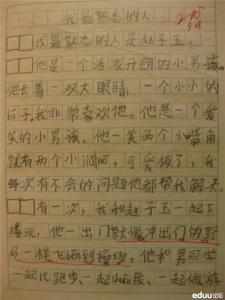 我最熟悉的人
我最熟悉的人是赵子玉。
他是一个活泼开朗的小男孩。
他长着一双大眼睛,一个小小的
我非常喜欢他。他是一个爱
笑的小男孩。他一笑两个小嘴角
就有两个小酒窝,可爱极了,我
每次有不会的问题他都帮我解决。
有一次,我和赵子玉一起下
楼玩,他一出门就像冲出们的野
马一样飞跑到操场,他和男同学
一起比跑步、一起 、一起做游
eduu论坛